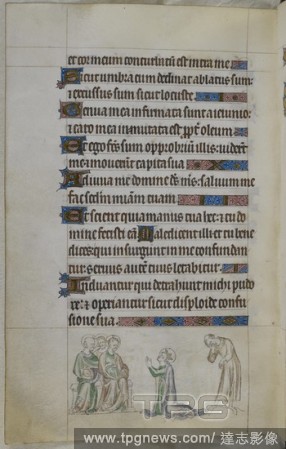 et cor meum conturbatum est intra me
Sicut umbra cum declinat ablatus sum:
⁊ excussus sum sicut locuste
Genua mea infirmata sunt a ieiunio:
⁊ caro mea inmutata est ꝓpt̄ oleum
Et ego fc̄s sum opprobrium illis: uider̄t
me ⁊ mouerunt capita sua
Adiuua me domine ds̄ ms̄: saluum me
fac scd̄m mīam tuam.
Et sciant quia manus tua hec: ⁊ tu do
mine fecisti eā Maledicent illi ⁊ tu bene
dices: qui insurgunt in me confundan
tur: seruus aut̄ tuus letabitur
Induantur qui detrahunt michi pudo
re: ⁊ operiantur sicut diploide confu
sione sua.
TPG
www.tpgnews.com/達志影像